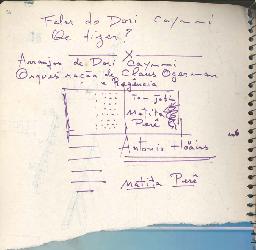 Falar do Dori Caymmi
Que dizer?
X
Arranjos de Dori Caymmi
Orquestração de Claus Ogerman
e Regência
Tom Jobim
Matita
Perê
Antonio
Matita Perê